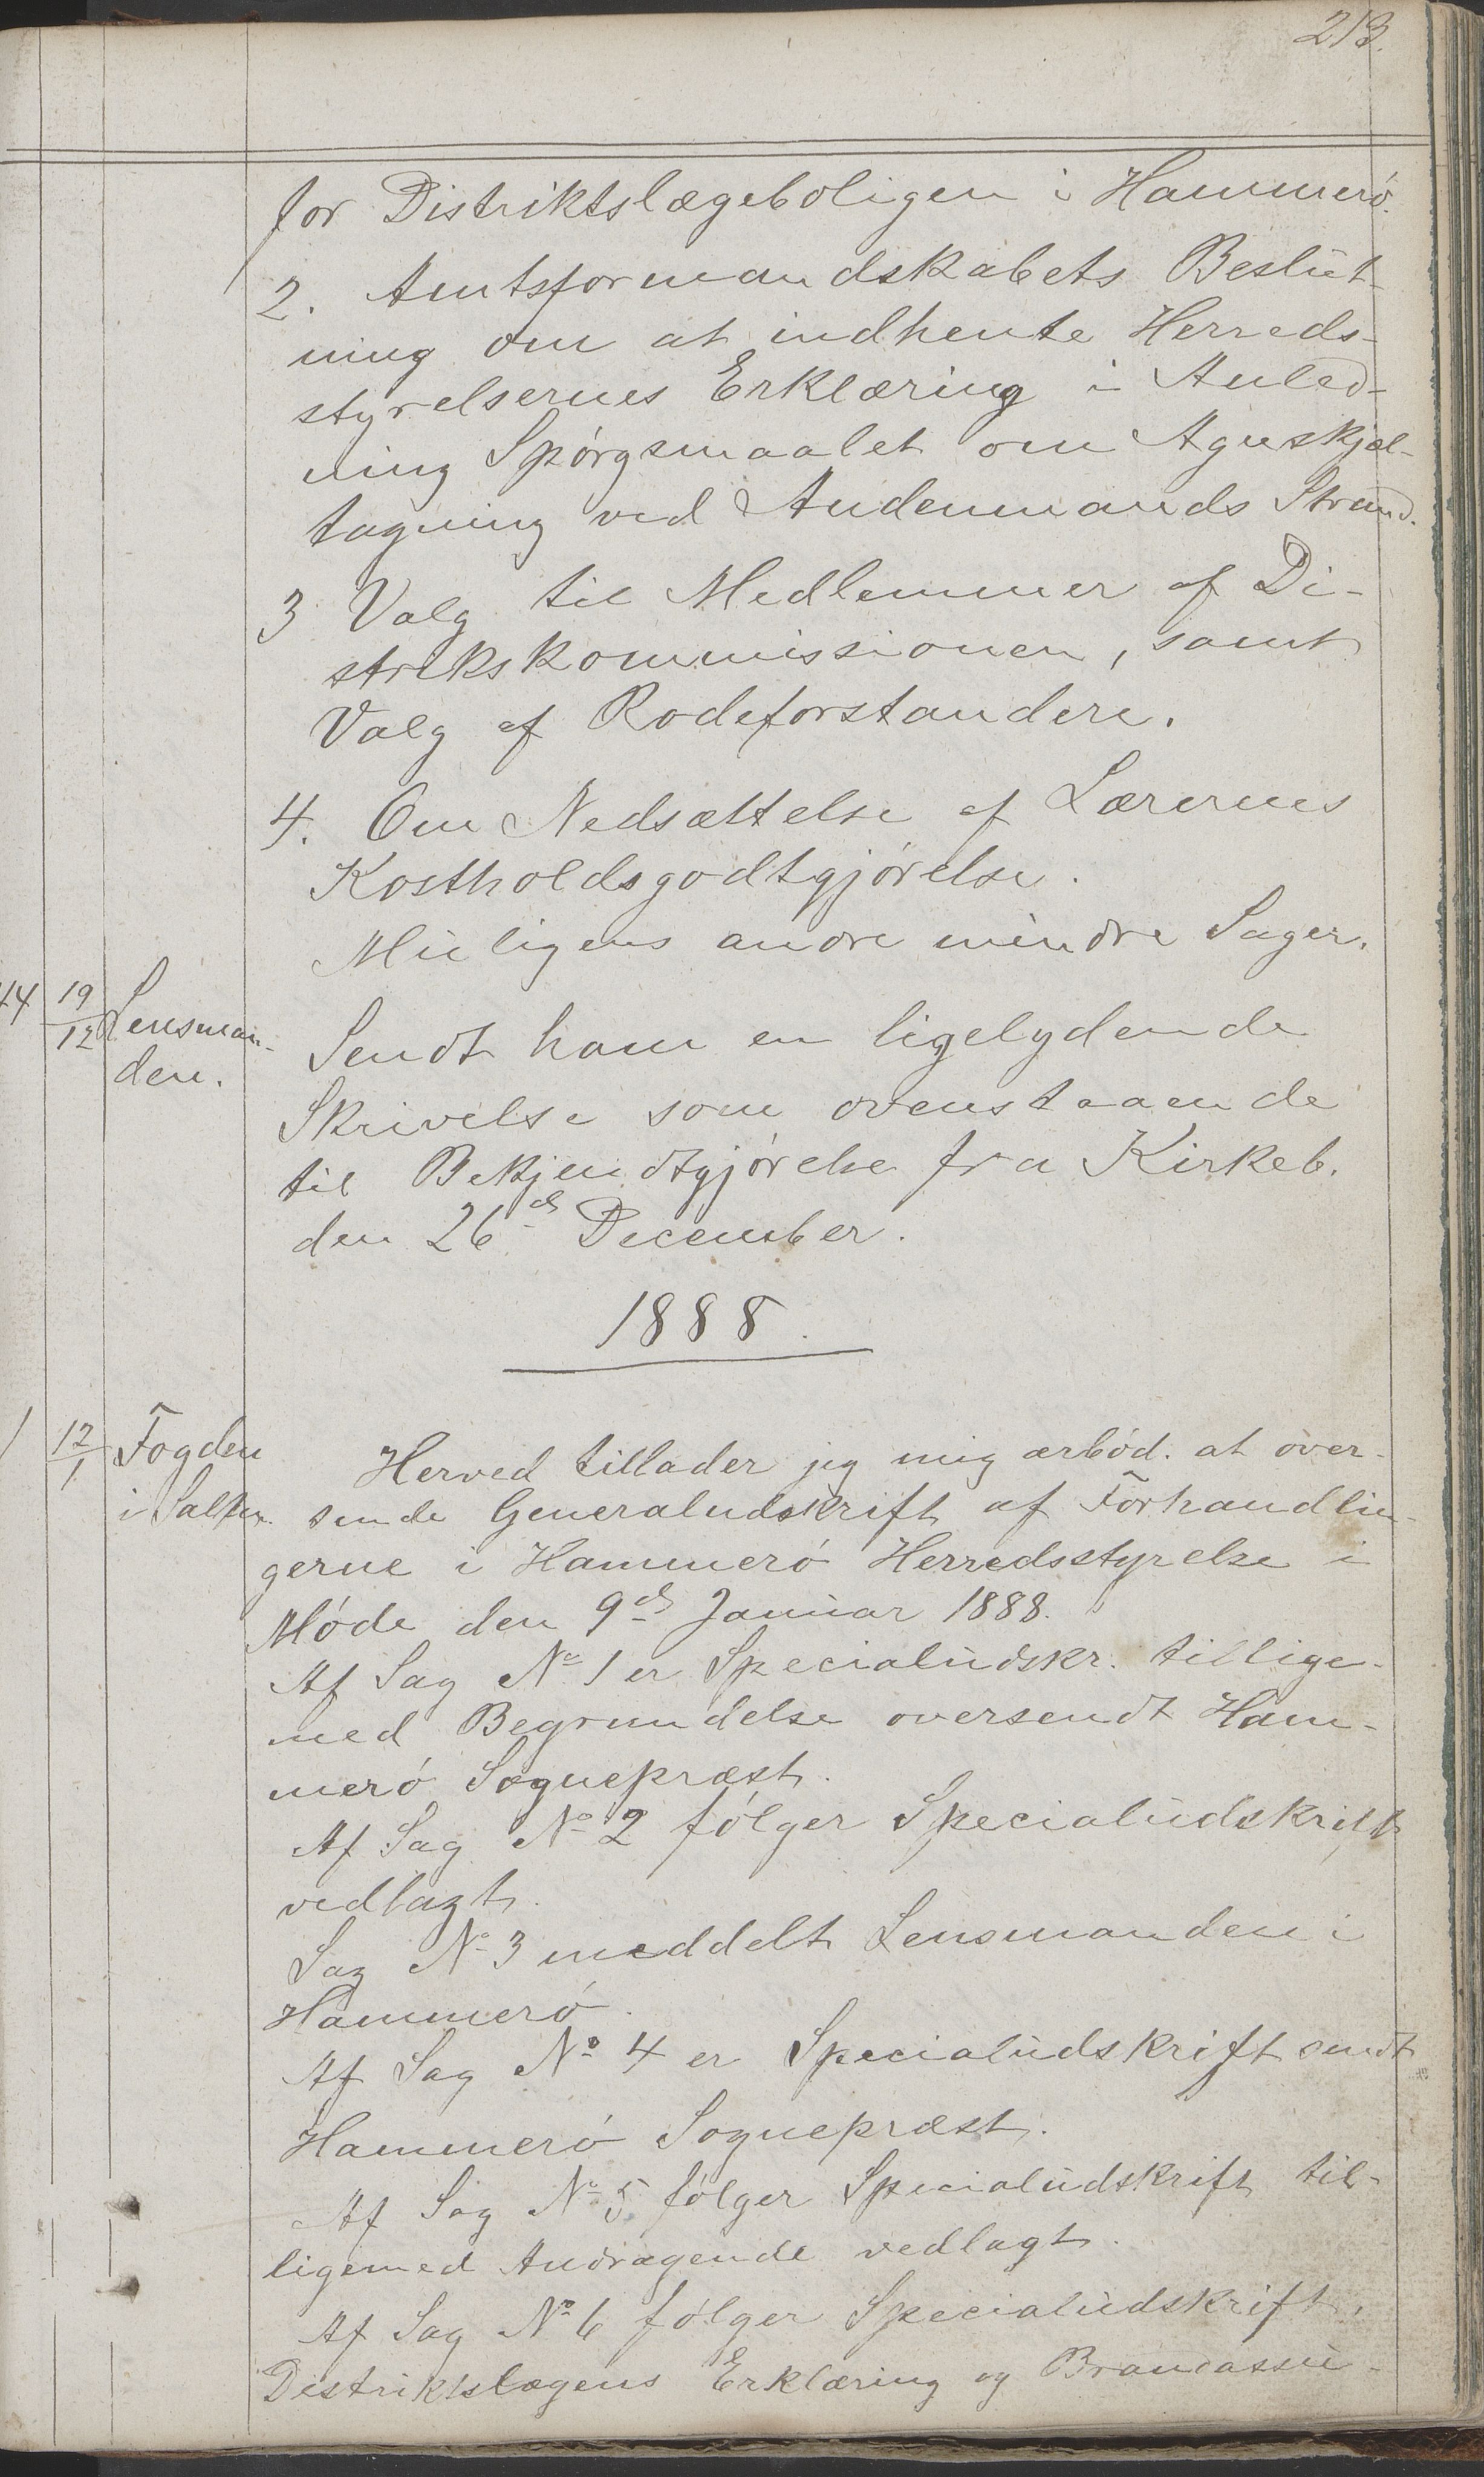 213.
for Distriktslægeboligen i Hammerø.
2. Amtsformandskabets Beslut-
ning om at indhente Herreds-
styrelsernes Erklæring i Anled-
ning Spørgsmaalet om Agnskjæl-
tagning ved Andenmands Strand.
3 Valg til Medlemmer af Di-
strikskommissionen, samt
Valg af Rodeforstandere.
4. Om Nedsættelse af Lærernes
Kostholdsgodtgjørelse.
Muligens andre mindre Sager.
44 19/12 Lensman-
den.
Sendt ham en ligelydende
Skrivelse som ovenstaaende
til Bekjendtgjørelse fra Kirkeb.
den 26de December.
1888.
1 12/1 Fogden
i Salten.
Herved tillader jeg mig ærbød. at over-
sende Generaludskrift af Forhandlin-
gerne i Hammerø Herredsstyrelse i
Møde den 9de Januar 1888.
Af Sag No 1 er Specialudskr. tillige-
med Begrundelse oversendt Ham-
merø Sogneprest.
Af Sag No 2 følger Specialudskrift
vedlagt.
Sag No 3 meddelt Lensmanden i
Hammerø.
Af Sag No 4 er Specialudskrift sendt
Hammerø Sognepræst.
Af Sag No 5 følger Specialudskrift til-
ligemed Andragende vedlagt.
Af Sag No 6 følger Specialudskrift,
Distriktslægens Erklæring og Brandassu-